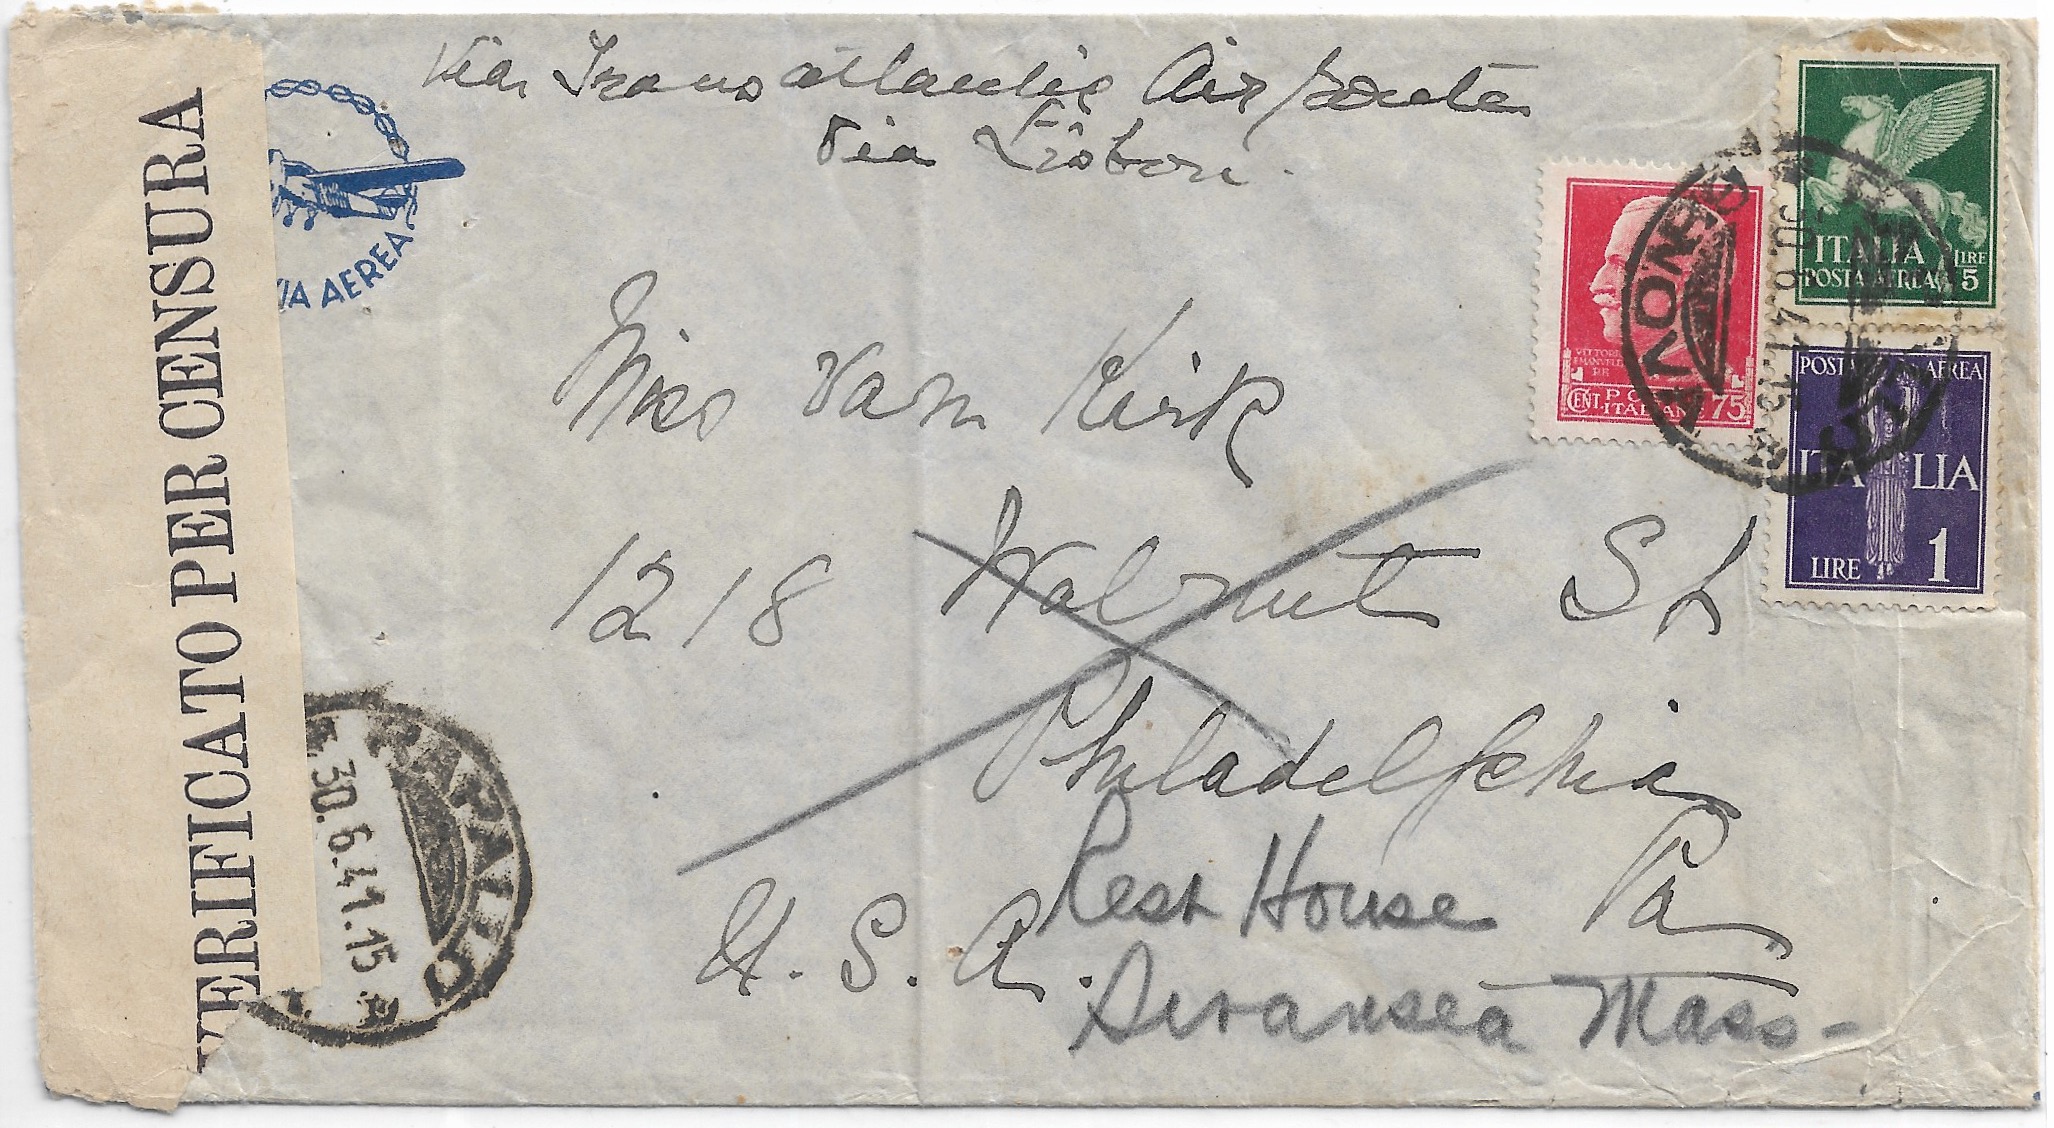 Via Transatlantic Air route
via Lisbon.
VERIFICATO PER CENSURA
VIA AEREA
ITALIA LIRE 5
POSTA AEREA
VITTORIO
EMANUELE
RE
CENT. POSTE
ITALIANE 75
GENOVA
POSTA AEREA
ITALIA
LIRE 1
Miss Van Kirk
1218 Walnut St
Philadelphia
Pa
U. S. A.
Rest House
Swansea Mass-
RAPALLO
30.6.41.15